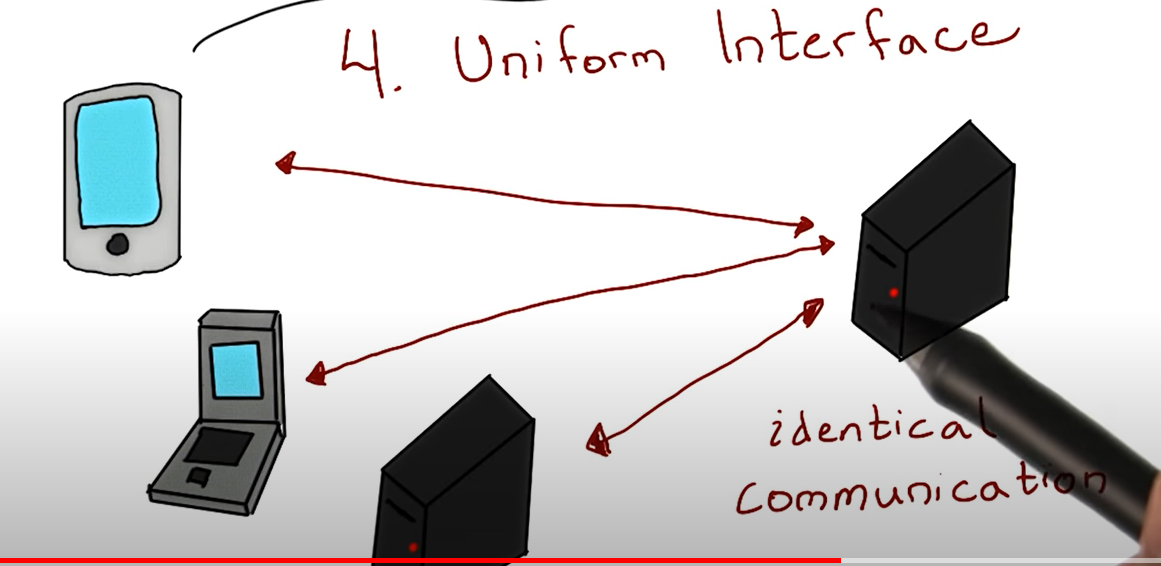 4. Uniform Interface
identical
communication